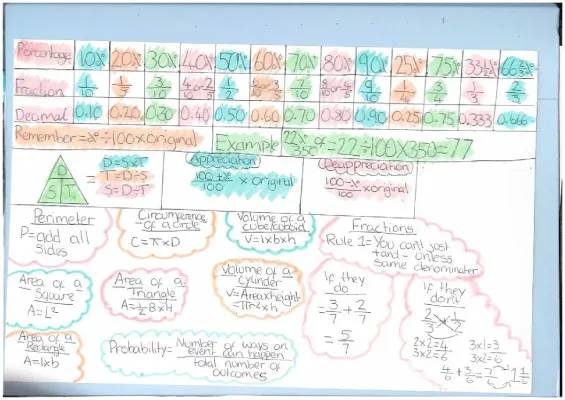 Percentage 10% 20% 30% 40% 50% 60% 70% 80% 90% 25% 75% 33⅓% 66⅔%
Fraction 1/10 1/5 3/10 4/10=2/5 1/2 6/10=3/5 7/10 8/10=4/5 9/10 1/4 3/4 1/3 2/3
Decimal 0.10 0.20 0.30 0.40 0.50 0.60 0.70 0.80 0.90 0.25 0.75 0.333 0.666
Remember = x% ÷ 100 × original
Example 22% 350 = 22 ÷ 100 × 350 = 77
D
S T
D=S×T
= T=D÷S
S=D÷T
Appreciation
100+x/100 × original
Deappreciation
100-x/100 × original
Perimeter
P=add all
sides
Circumference
of a circle
C=π×D
Volume of a
cube/cuboid
V=l×b×h
Fractions
Rule 1= You can't just
+and- unless
same denominater
Area of a
Square
A=L²
Area of a
Triangle
A=½B×H
Volume of a
Cylinder
V=Area×height
=πr²×h
if they
do
=3/7+2/7
=5/7
if they
don't
2/3 1/2
2×2=4 3×1=3
3×2=6 3×2=6
4/6+3/6=7/6=1 1/6
Area of a
Rectangle
A=l×b
Probability= Number of ways an
event can happen
total number of
outcomes